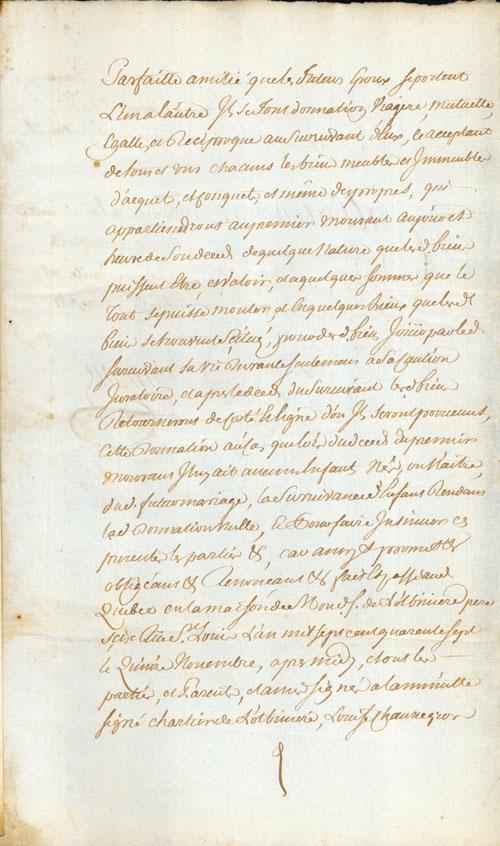 Parfaitte amitié que les futurs Epoux se portent
L'un a lautre Ils se font donnation Viagere, mutuelle,
Egalle, et Reciproque au Survivant d'Eux, ce acceptant
de tous et uns chacuns les bien meubles et Immeubles
d'acquet, et conquet, et même de propres, qui
appartiendrons au premier mourant au jour et
heure de son deced de quelque Nature que les d. bien
puissent Etre et Valoir, et a quelque somme que le
tout se puisse monter, et En quelques lieux que les d.
bien se trouvent scitué, pour des d. bien Jouir par led.
survivant sa vie durante seulement a sa Caution
Juratoire, et apres le deced du Survivant les d. bien
Retournerons de Coté et Ligne d'ou Ils seront provenus,
cette Donnation au Cas que lors du deced du premier
mourant Il n'y ait aucuns Enfant Nés, ou a Naitre
dud. futur mariage, la Survivance d'Enfans Rendant
lad. Donnation Nulle, Et Pour faire Insinuer ces
presente les partie &c., car ainsy &c promett &c
obligeant &c Renonceant &c fait et passé aud.
Quebec en la maison de Mond. S. de Lotbiniere pere
size Rue St. Louis L'an mil sept cent quarente sept
le Quinze Novembre, apres midy, et ont les
partie, et Parents, et amis signé a la minutte
signé chartier de Lotbiniere, Louise Chaussegros